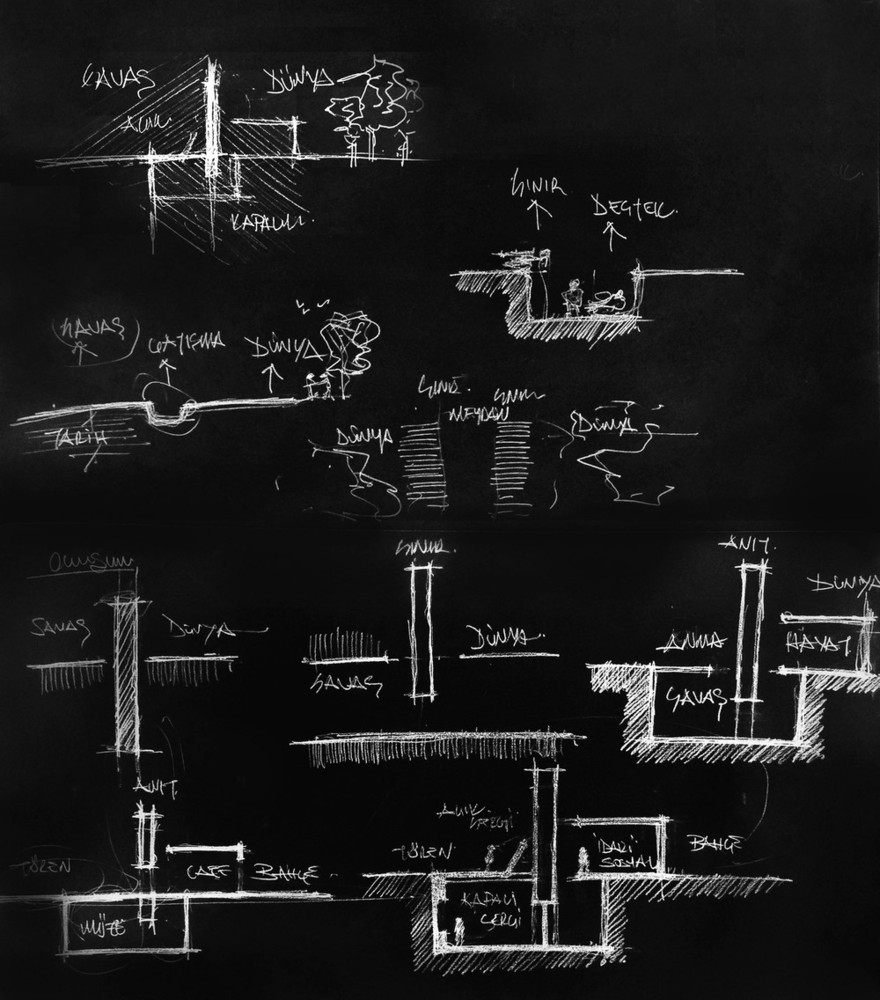 SAVAŞ
DÜNYA
AÇIK
KAPALI
SINIR
DESTEK
SAVAŞ
ÇATIŞMA
DÜNYA
TARİH
SINIR
SINIR
MEYDAN
DÜNYA
DÜNYA
SINIR
ANIT
SAVAŞ
DÜNYA
DÜNYA
SAVAŞ
DÜNYA
ANMA
HAYAT
SAVAŞ
ANIT
TÖREN
CAFE
BAHÇE
MÜZE
AÇIK
SERGİ
TÖREN
İDARİ
SOSYAL
BAHÇE
KAPALI
SERGİ